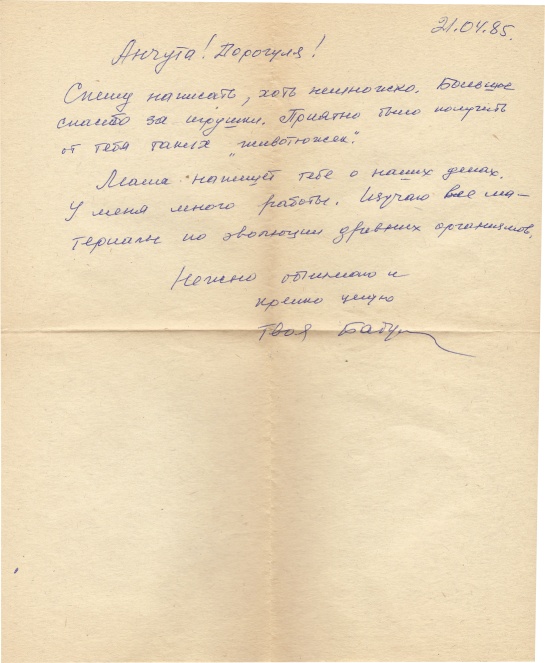 21.04.85.
Анчута! Дорогуля!
Спешу написать, хоть немножко. Большое
спасибо за игрушки. Приятно было получить
от тебя таких „животюжек".
Маша напишет тебе о наших делах.
У меня много работы. Изучаю все ма-
териалы по эволюции древних организмов.
Нежно обнимаю и
крепко целую
Твоя Бабу